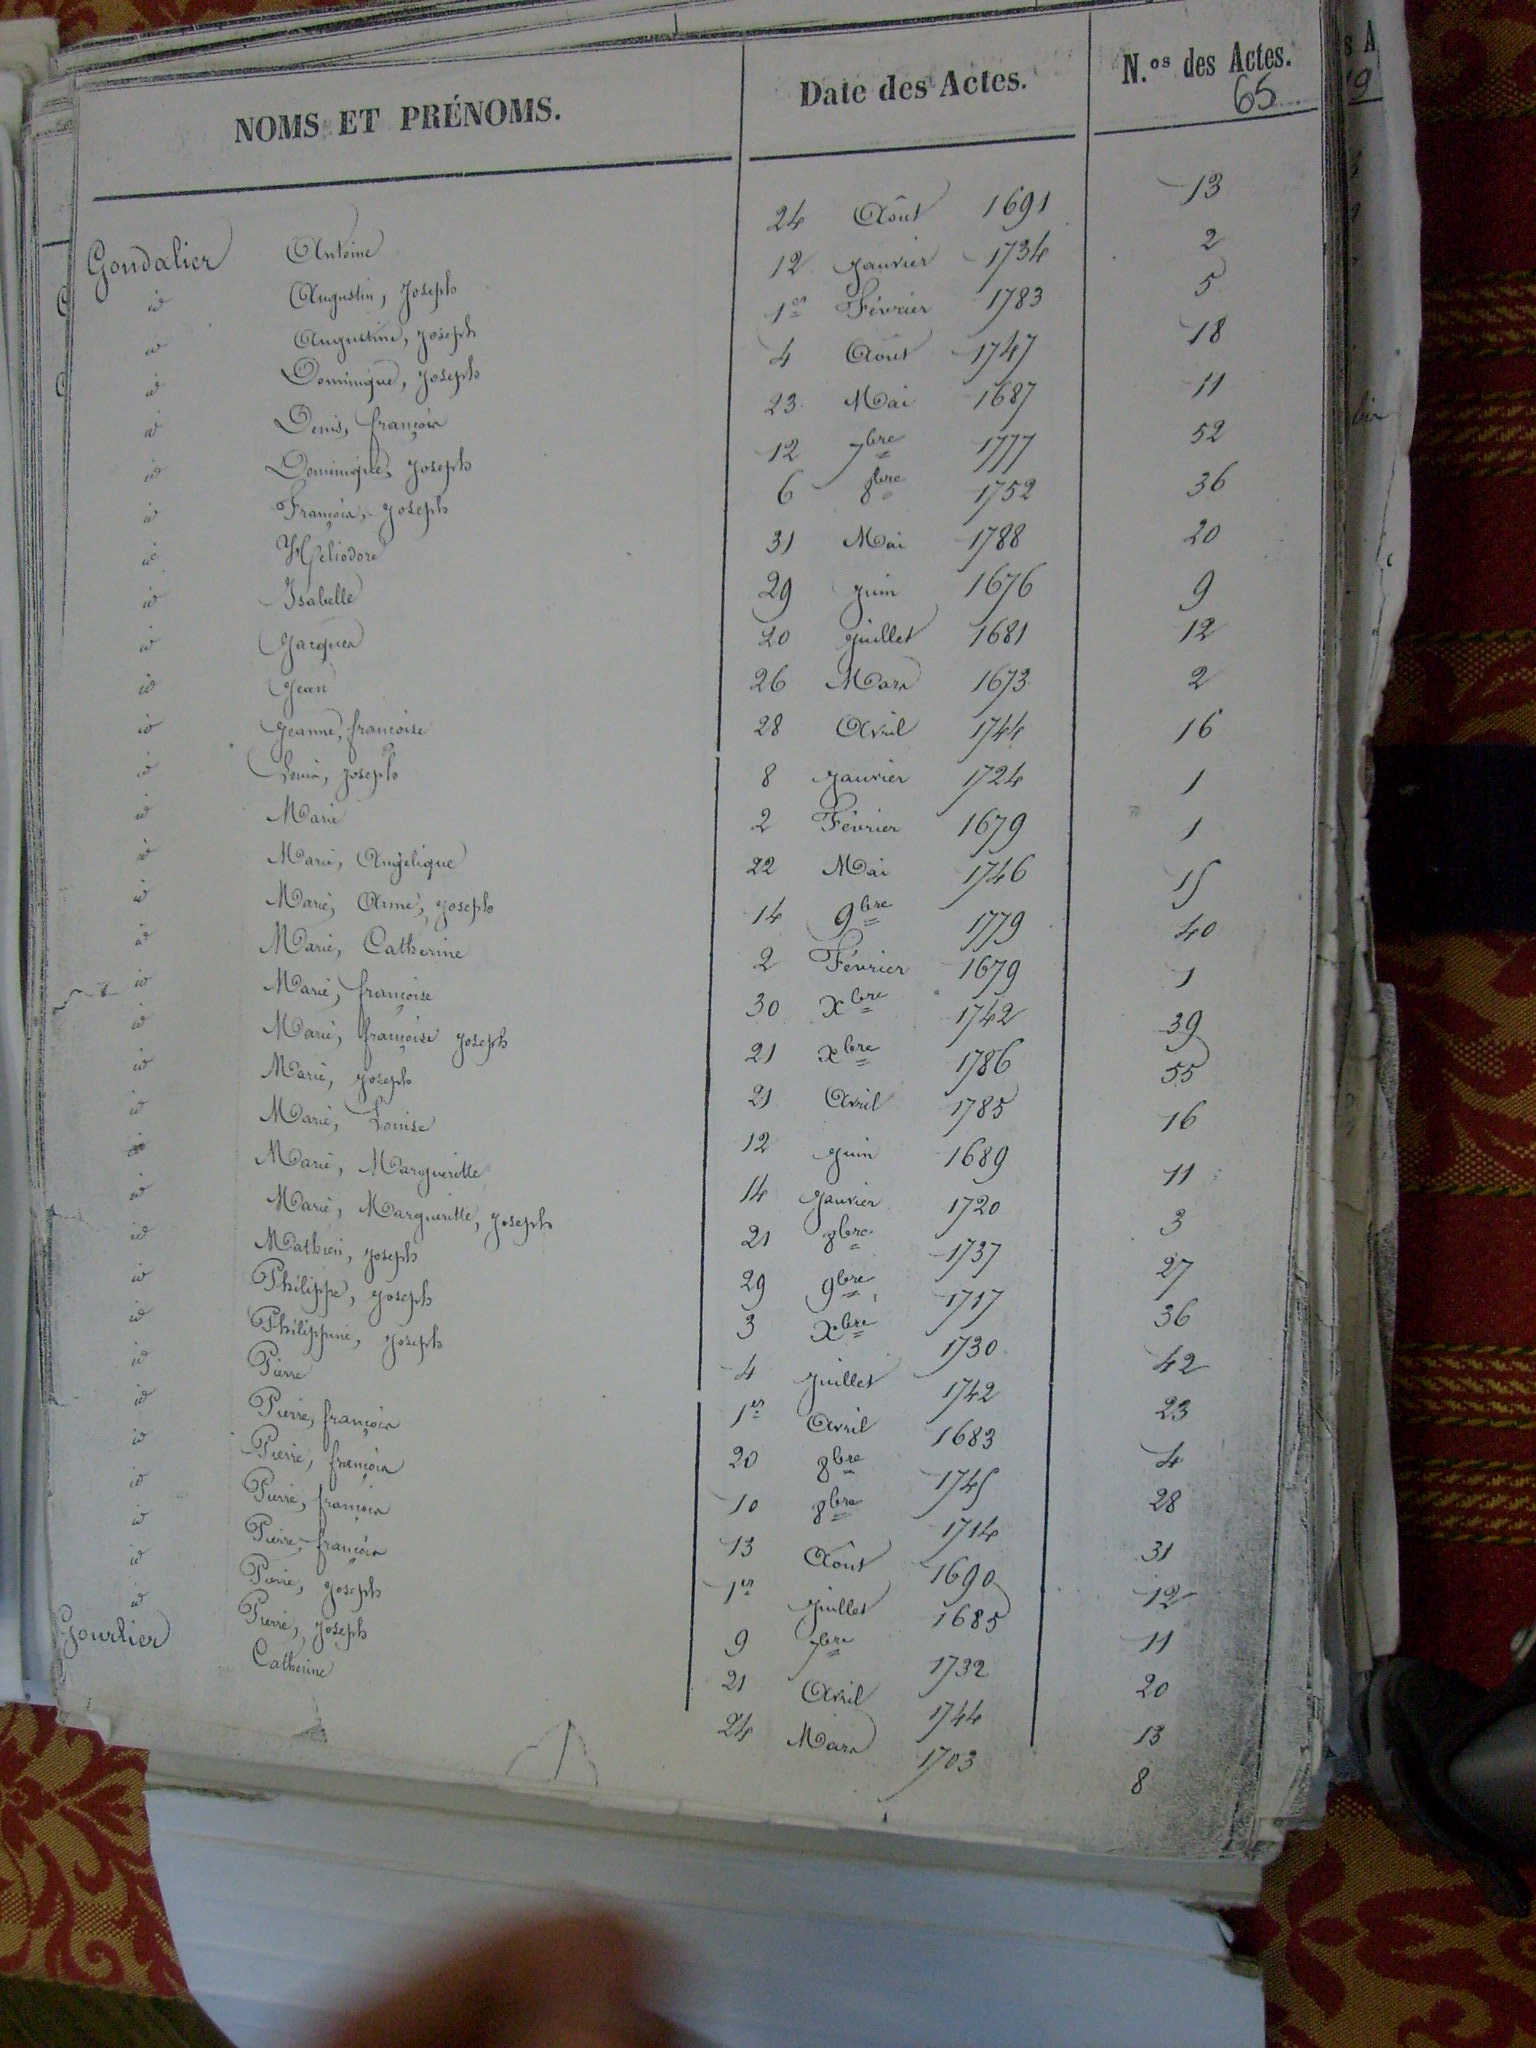 NOMS ET PRÉNOMS. Date des Actes. N.os des Actes.
65
Gondalier Antoine 24 Août 1691 13
id Augustin, Joseph 12 Janvier 1734 2
id Augustine, Joseph 1er Février 1783 5
id Dominique, Joseph 4 Août 1747 18
id Denis, françois 23 Mai 1687 11
id Dominique, Joseph 12 7bre 1777 52
id François, Joseph 6 8bre 1752 36
id Héliodore 31 Mai 1788 20
id Isabelle 29 Juin 1676 9
id Jacques 20 Juillet 1681 12
id Jean 26 Mars 1673 2
id Jeanne, françoise 28 Avril 1744 16
id Louis, Joseph 8 Janvier 1724 1
id Marie 2 Février 1679 1
id Marie, Angélique 22 Mai 1746 15
id Marie, Anne, Joseph 14 9bre 1779 40
id Marie, Catherine 2 Février 1679 1
id Marie, françoise 30 xbre 1742 39
id Marie, françoise Joseph 21 xbre 1786 55
id Marie, Joseph 21 Avril 1785 16
id Marie, Louise 12 Juin 1689 11
id Marie, Margueritte 14 Janvier 1720 3
id Marie, Margueritte, Joseph 21 8bre 1737 27
id Mathieu, Joseph 29 9bre 1717 36
id Philippe, Joseph 3 xbre 1730 42
id Philippine, Joseph 4 Juillet 1742 23
id Pierre 1er Avril 1683 4
id Pierre, françois 20 8bre 1745 28
id Pierre, françois 10 8bre 1714 31
id Pierre, françois 13 Août 1690 12
id Pierre, françois 1er Juillet 1685 11
id Pierre, Joseph 9 7bre 1732 20
id Pierre, Joseph 21 Avril 1744 13
Gourlier Catherine 24 Mars 1703 8